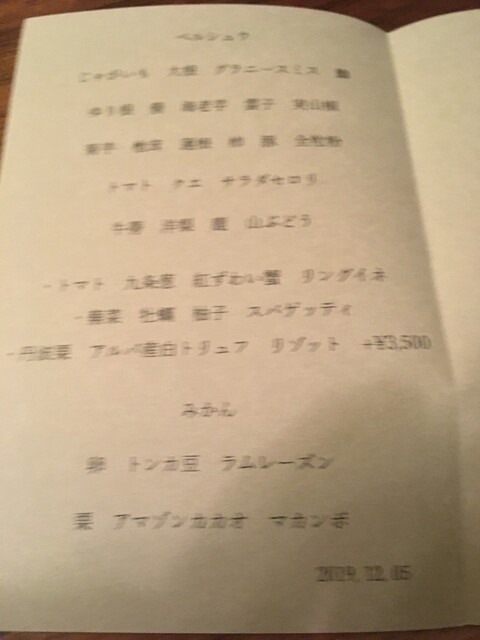 ペルシュウ
じゃがいも 大根 グラニースミス
ゆり根 海老芋 雲子
里芋 蓮根 全粒粉
トマト クエ サラダセロリ
牛蒡 洋梨 鹿 山ぶどう
・トマト 九条葱 紅ずわい蟹 リングイネ
牡蠣 柚子 スパゲッティ
・丹波栗 アルバ産白トリュフ リゾット +¥3,500
みかん
卵 トンカ豆 ラムレーズン
栗 アマゾンカカオ マカンボ
2019.12.05